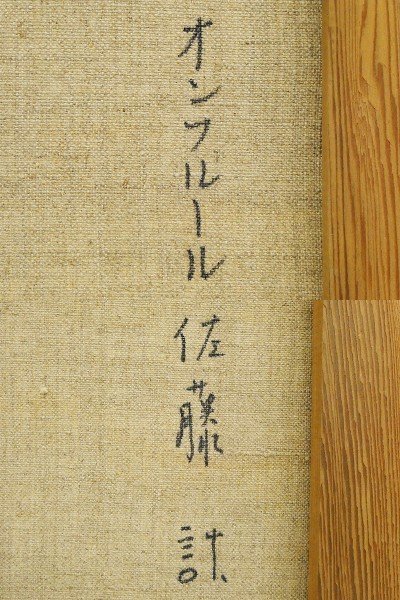 オンフルール 佐藤 計